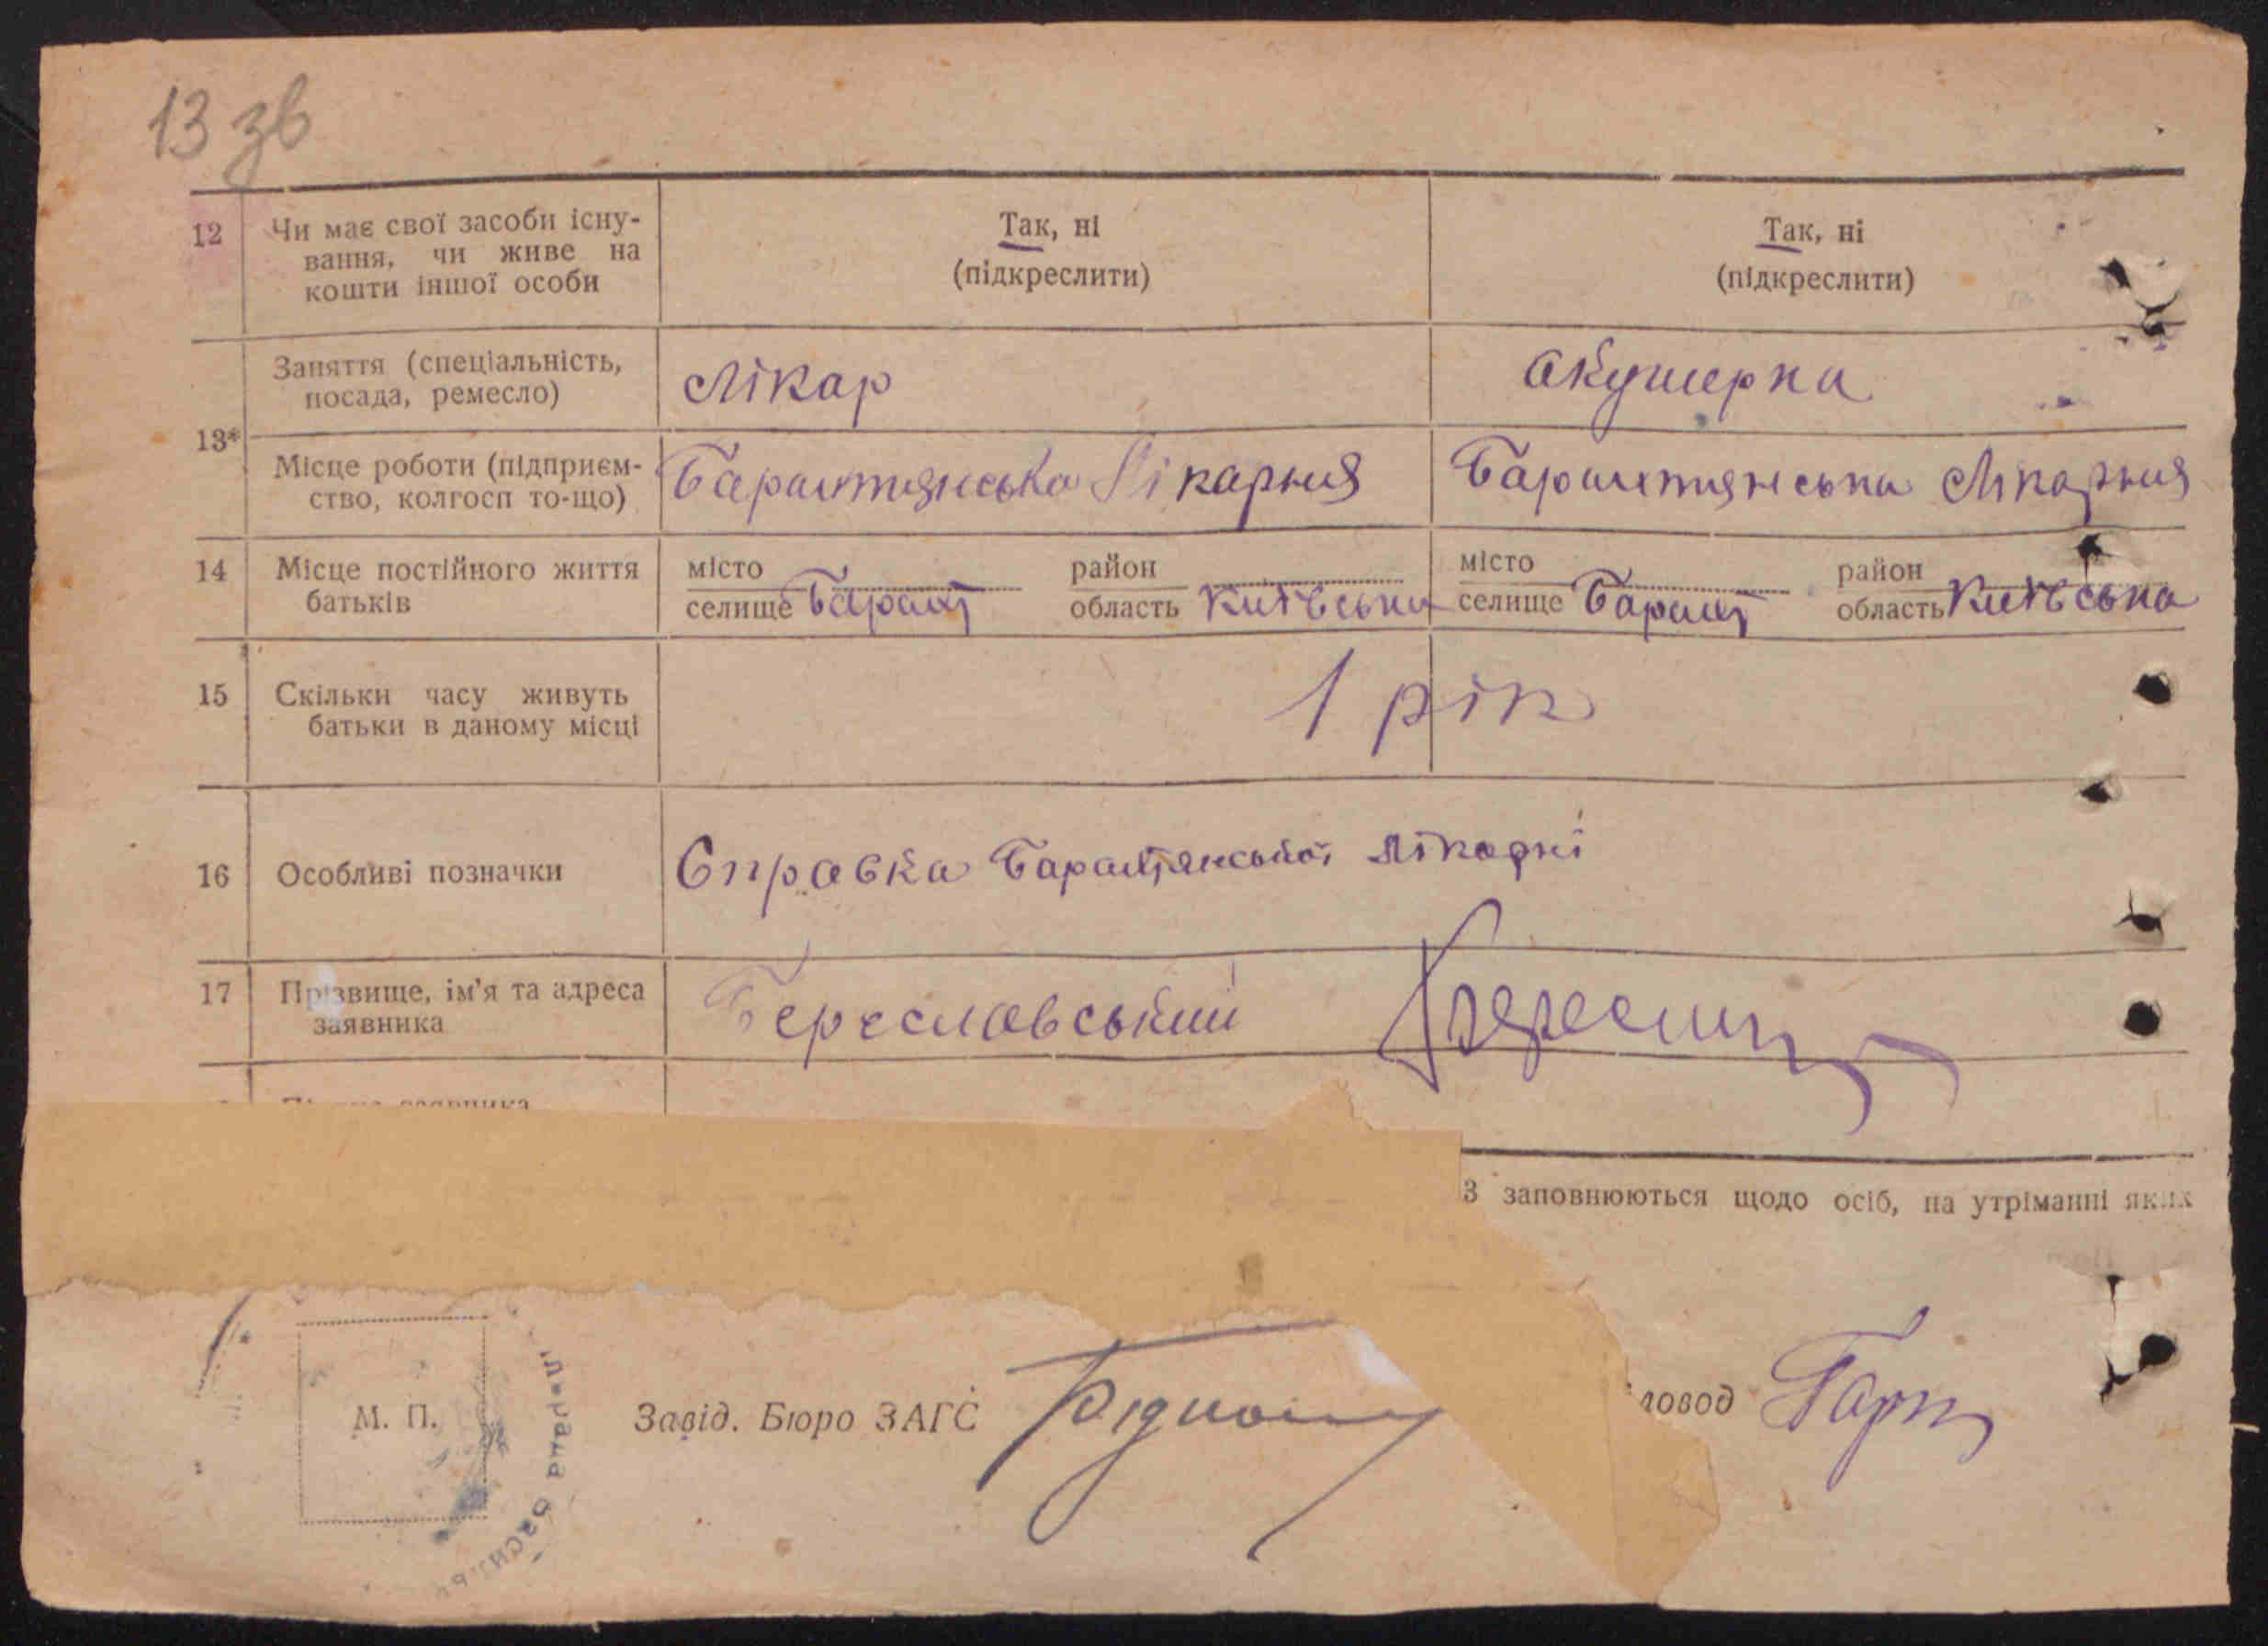 13 зв
12 Чи має свої засоби існу- Так, ні Так, ні
вання, чи живе на (підкреслити) (підкреслити)
кошти іншої особи
Заняття (спеціальність, Лікар Акушерка
посада, ремесло)
13*
Місце роботи (підприєм- Бараштянська Лікарня Бараштянська Лікарня
ство, колгосп то-що)
14 Місце постійного життя місто район місто район
батьків селище Бараш область Київська селище Бараш область Київська
15 Скільки часу живуть 1 рік
батьки в даному місці
16 Особливі позначки Справка Бараштянської Лікарні
17 Прізвище, ім'я та адреса Береславський
заявника
заявника
З заповнюються щодо осіб, на утріманні яких
М. П. Завід. Бюро ЗАГС ловод